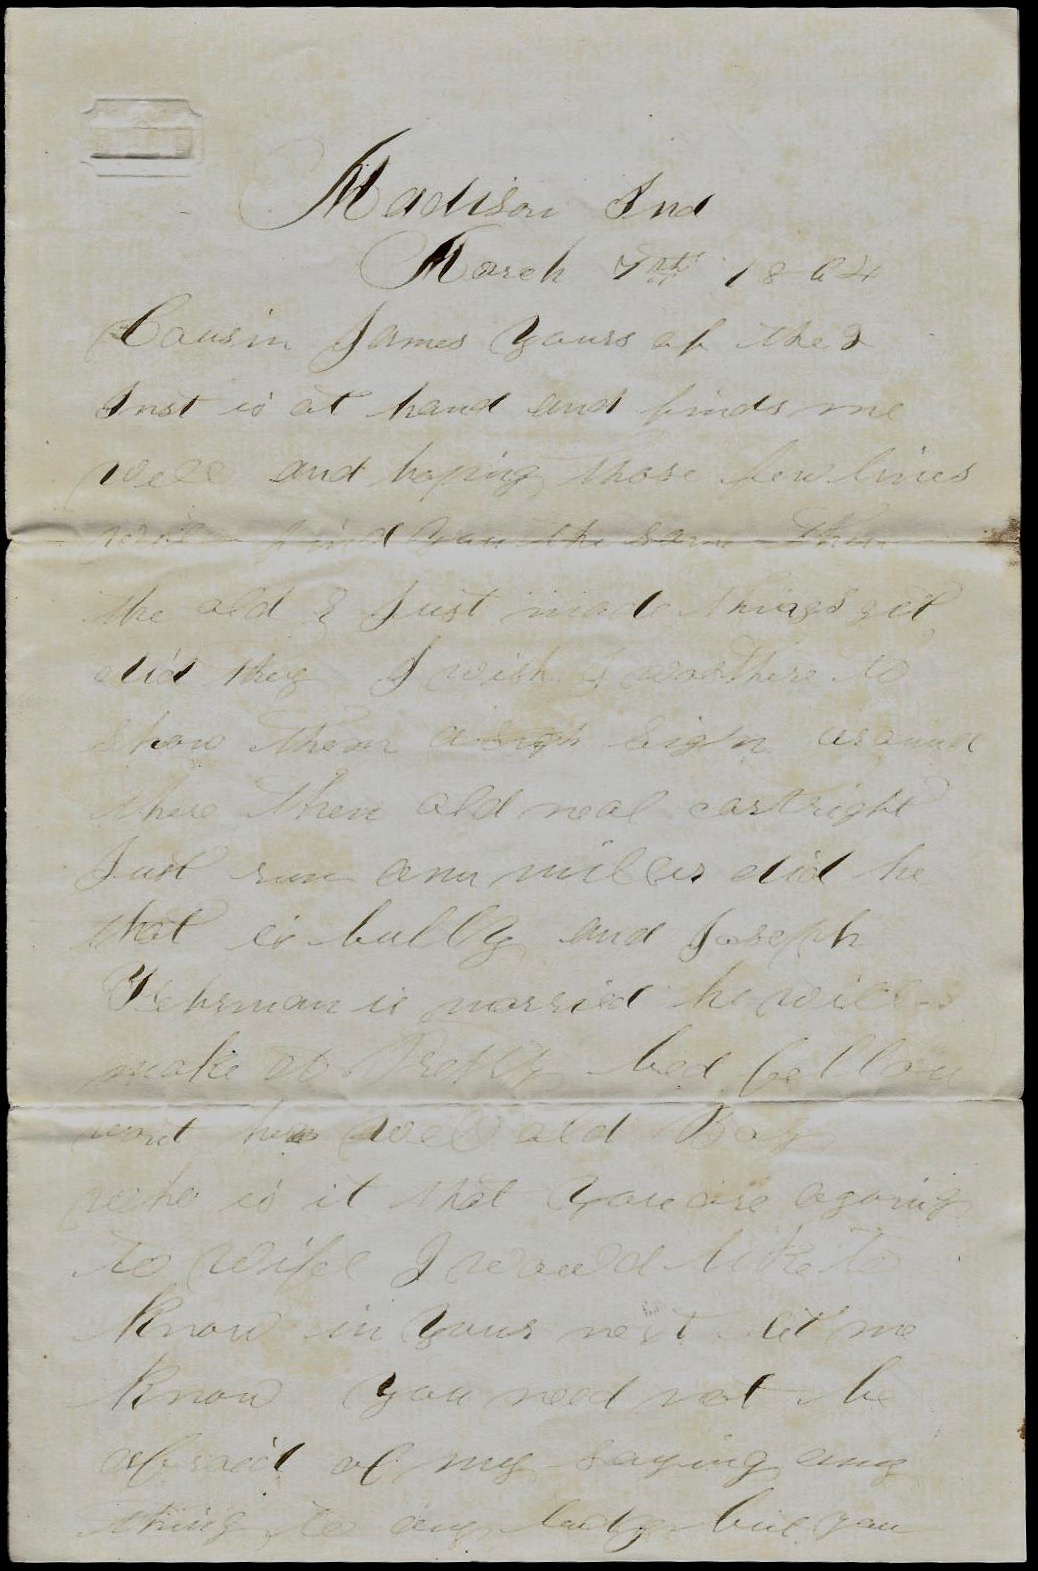 Madison Ind
March 7th 1864
Cousin James Yours of the 2
Inst is at hand and finds me
well and hoping those few lines
will find you the same then
the old 3 Just made things git
did they I wish I was there to
show them a sign around
there then old neal cartright
Just run ann miller did he
that is bully and Joseph
is married he will
make a Pretty bed fellow
wont he well old Boy
who is it that you are agoing
to wife I would like to
know in your next let me
know you need not be
afraid of my saying any
thing to any body but you